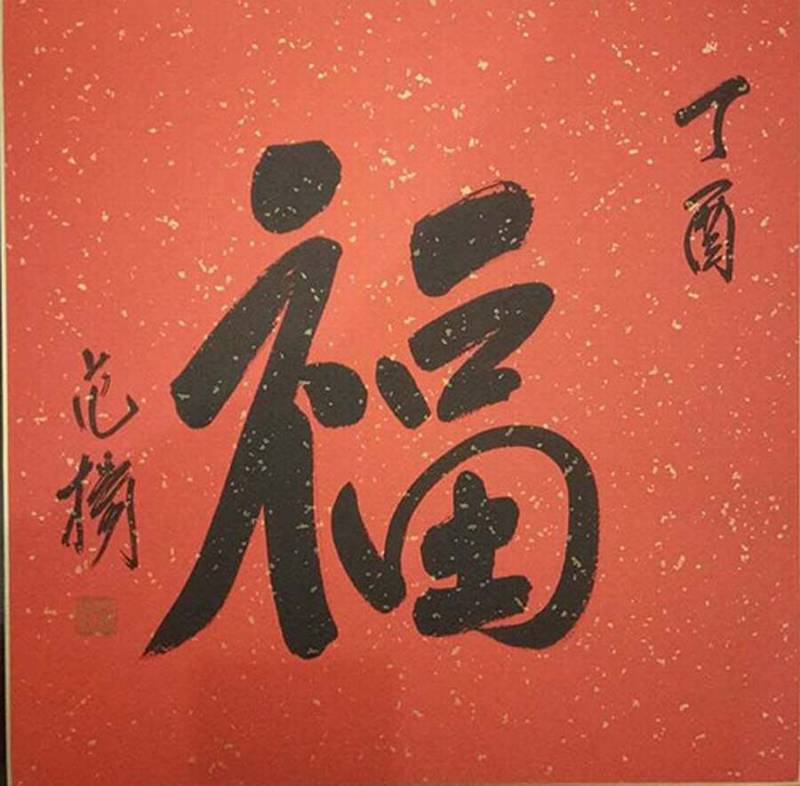 丁酉
福
范